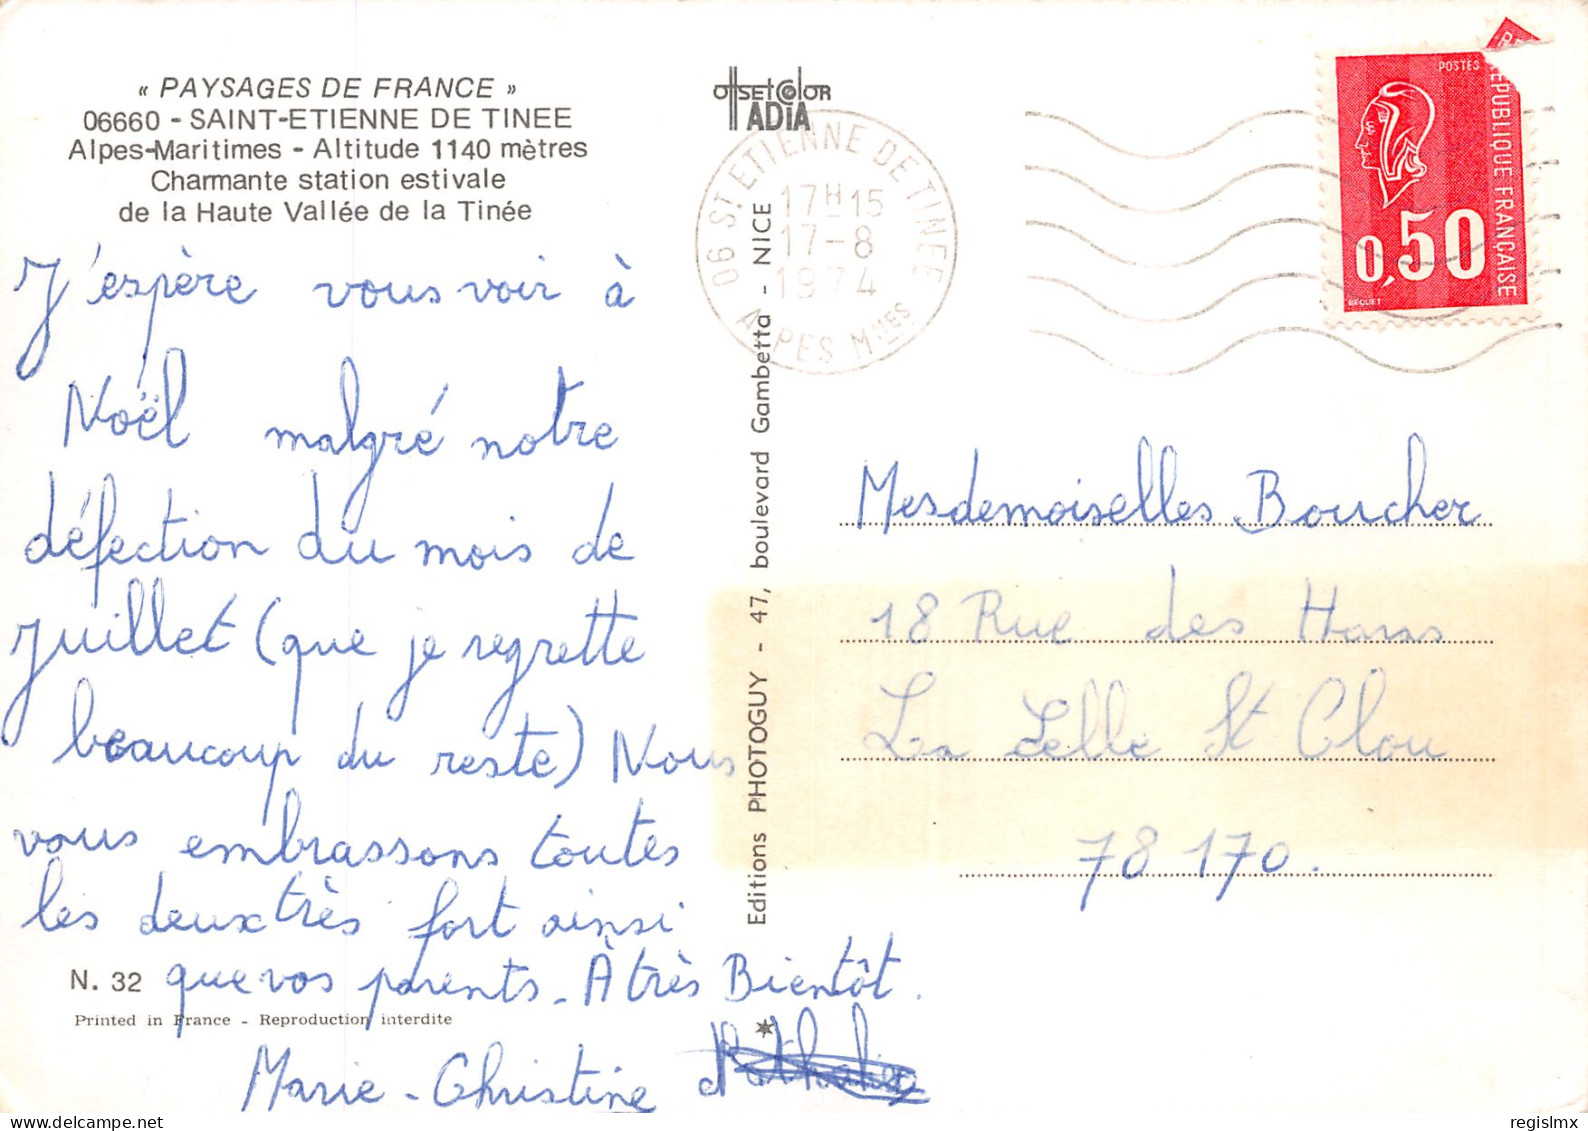 « PAYSAGES DE FRANCE »
06660 - SAINT-ETIENNE DE TINEE
Alpes-Maritimes - Altitude 1140 mètres
Charmante station estivale
de la Haute Vallée de la Tinée
J'espère vous voir à
Noël malgré notre
défection du mois de
juillet (que je regrette
beaucoup du reste) Nous
vous embrassons toutes
les deux très fort ainsi
que vos parents - À très Bientôt.
Marie - Christine
N. 32
Printed in France - Reproduction interdite
OffSET COlOR
ADIA
Editions PHOTOGUY - 47, boulevard Gambetta - NICE
*
06 ST ETIENNE DE TINEE
17H15
17-8
1974
ALPES MMES
POSTES
REPUBLIQUE FRANÇAISE
0,50
BEQUET
Mesdemoiselles Boucher
18 Rue des Haras
La Celle St Clou
78 170.
regislmx